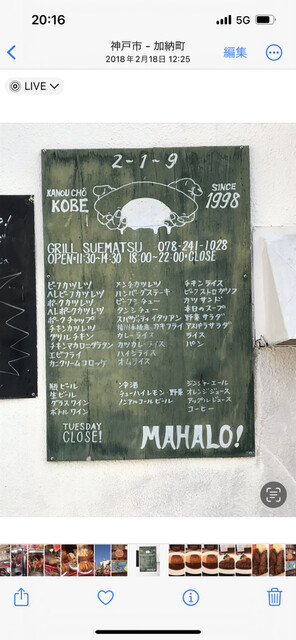 20:16
5G
神戸市 – 加納町
2018年2月18日 12:25
編集
LIVE
2-1-9
KANOU CHŌ
KOBE
SINCE
1998
GRILL SUEMATSU 078-241-1028
OPEN・11:30-14:30 18:00-22:00・CLOSE
ビーフカツレツ
ヘレビーフカツレツ
ポークカツレツ
ヘレポークカツレツ
ポークチャップ
チキンカツレツ
グリルチキン
チキンマカロニグラタン
エビフライ
カニクリームコロッケ
メンチカツレツ
ハンバーグステーキ
ビーフシチュー
タンシチュー
スパゲッティイタリアン
カキフライ
カレーライス
カツカレーライス
ハイシライス
オムライス
チキンライス
ビーフストロガノフ
カツサンド
本日のスープ
野菜サラダ
アスパラサラダ
ライス
パン
瓶ビール
生ビール
グラスワイン
ボトルワイン
冷酒
チューハイ レモン・野菜
ノンアルコールビール
ジンジャーエール
オレンジジュース
アップルジュース
コーヒー
TUESDAY
CLOSE!
MAHALO!